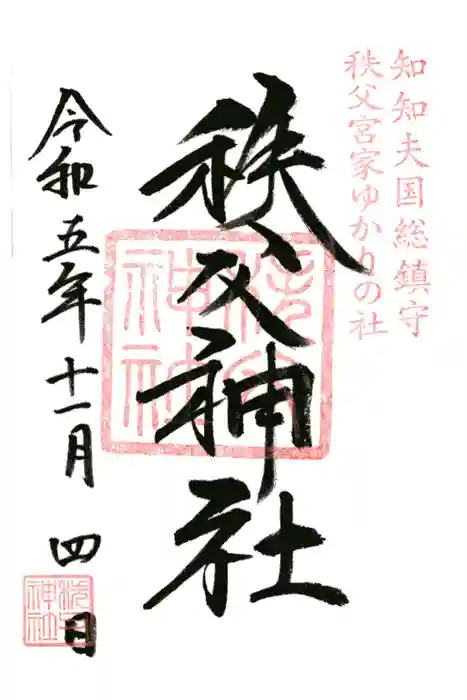 知知夫国総鎮守
秩父宮家ゆかりの社
秩父神社
令和五年十一月四日
秩父神社